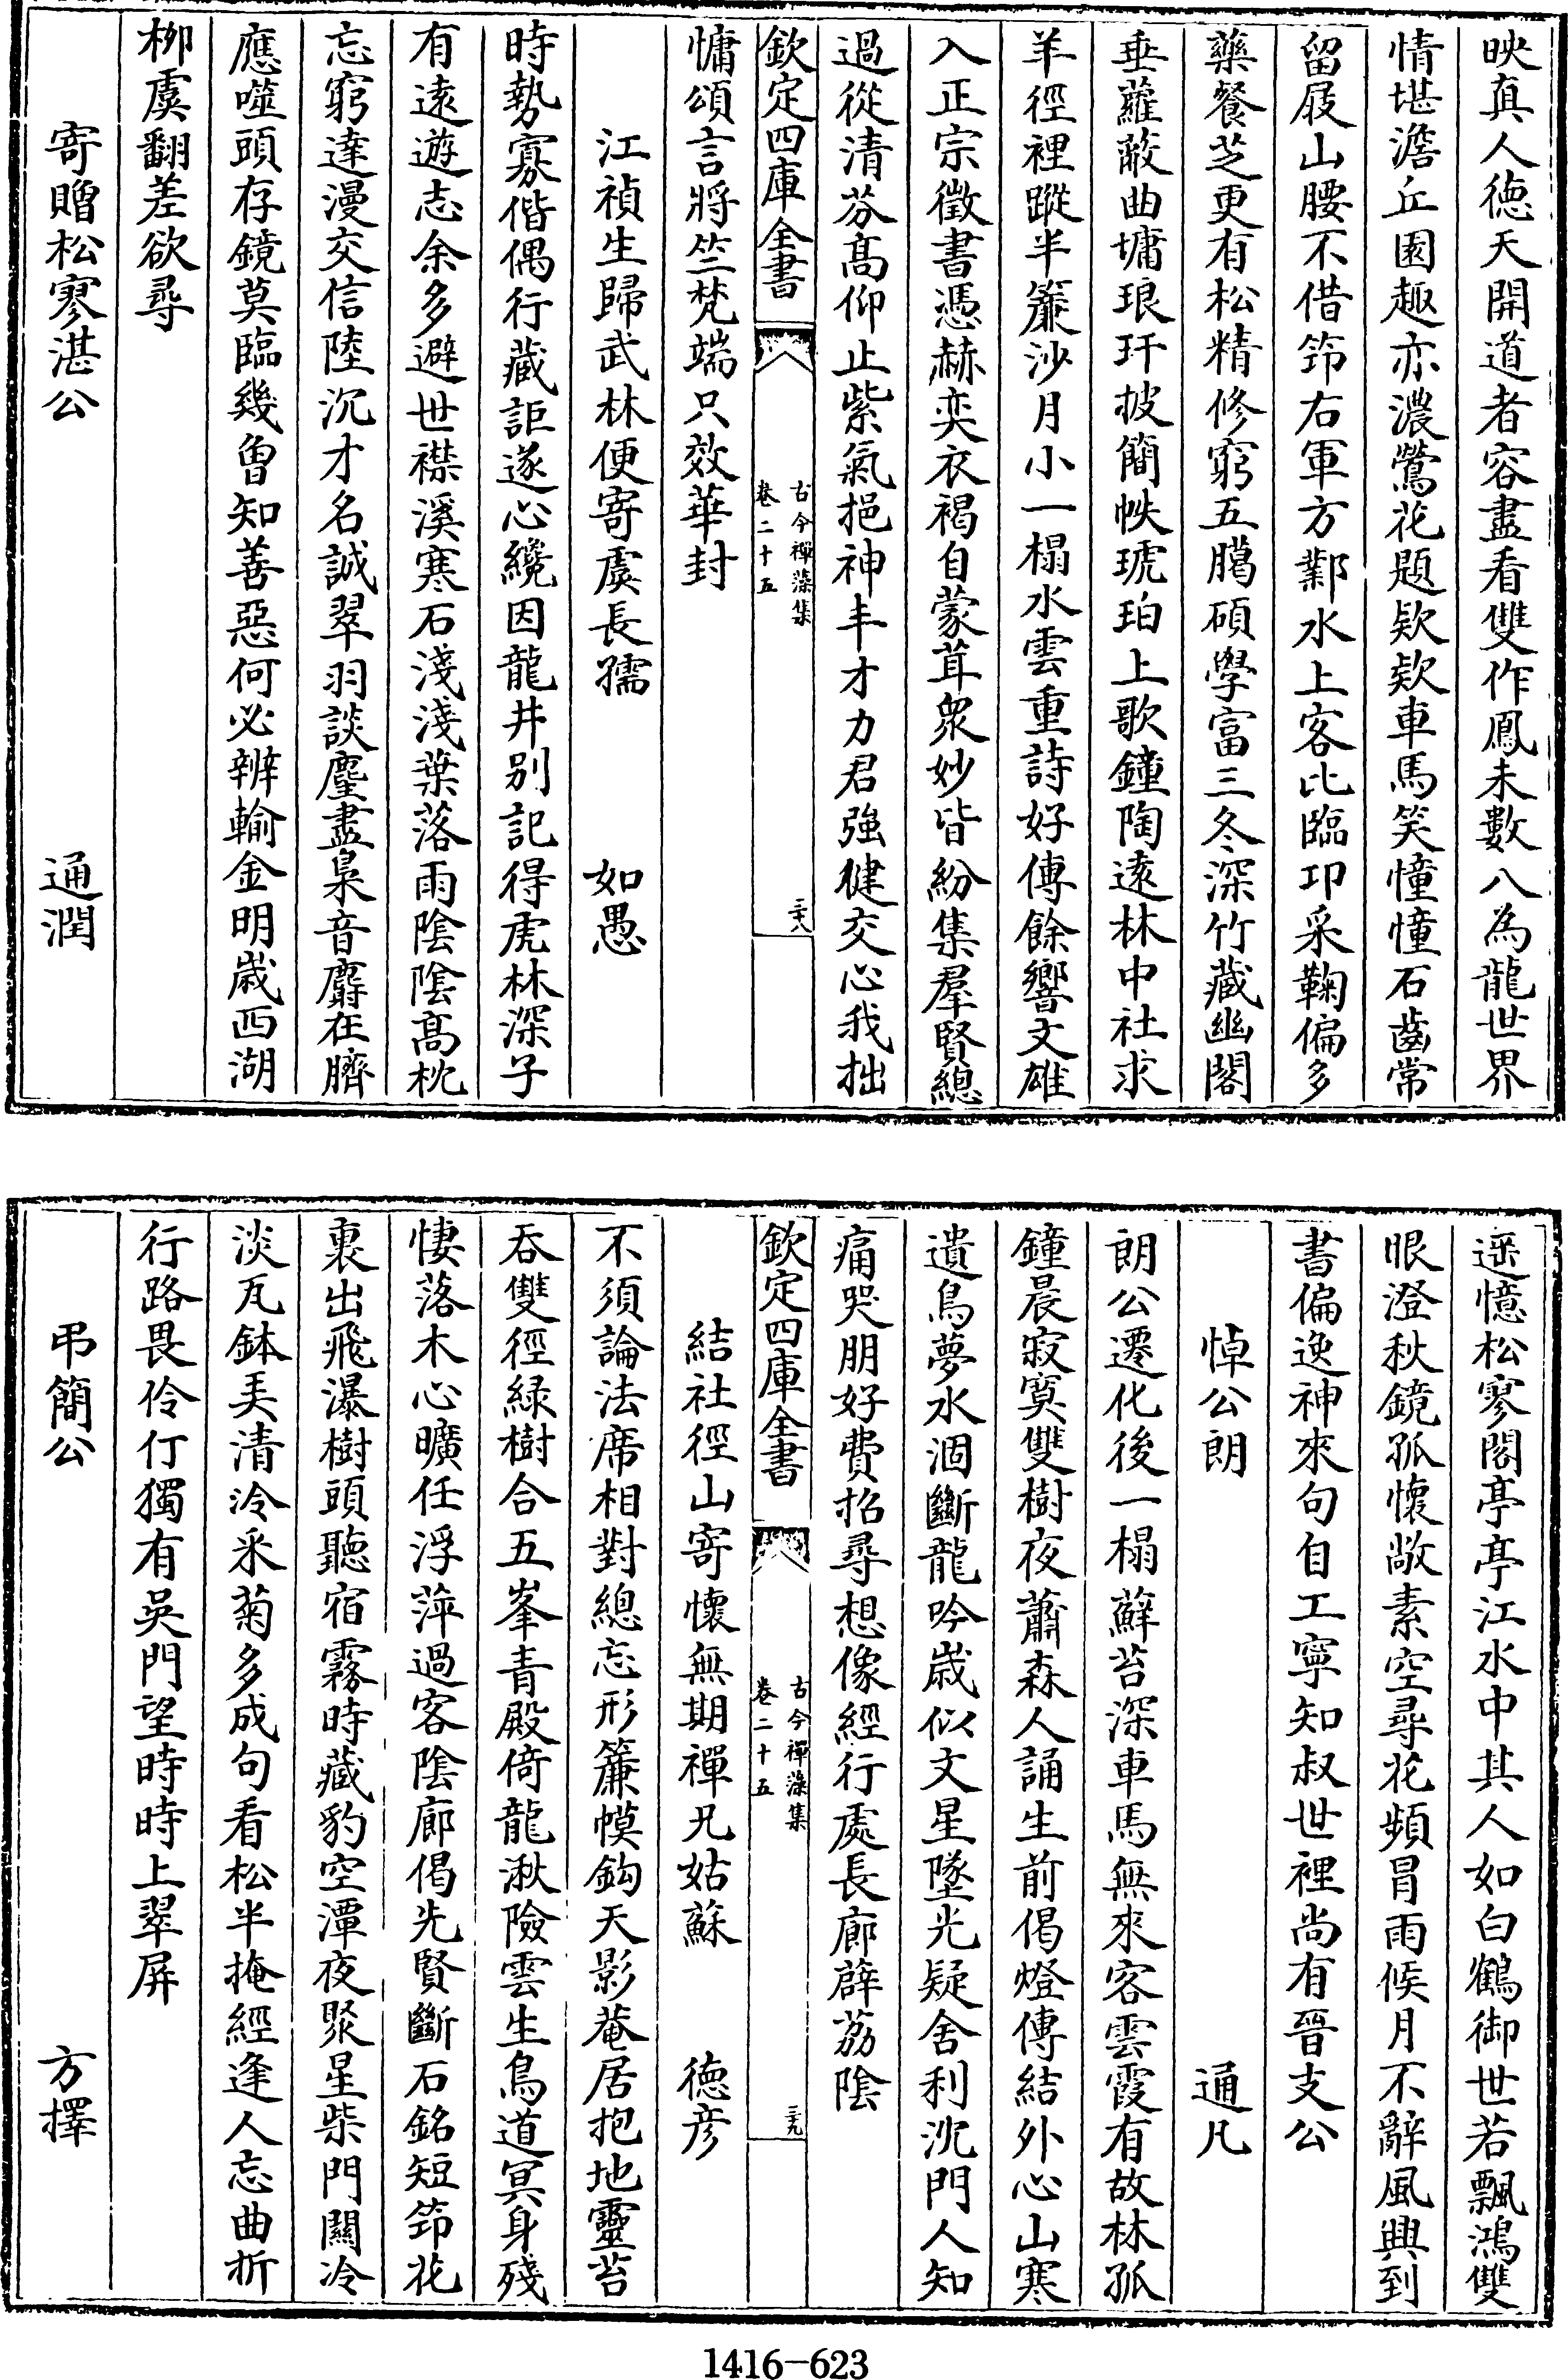 映真人徳天開道者容盡看雙作鳳未數八為龍世界
情堪澹丘園趣亦濃鶯花題欵欵車馬笑憧憧石齒常
留屐山腰不借笻右軍方鄴水上客比臨卭采鞠偏多
藥餐芝更有松精修窮五臈碩學富三冬深竹藏幽閣
垂蘿蔽曲墉琅玕披簡帙琥珀上歌鐘陶遠林中社求
羊徑裡蹤半簾沙月小一榻水雲重詩好傳餘響文雄
入正宗徵書憑赫奕衣褐自蒙茸衆妙皆紛集羣賢總
過從清芬髙仰止紫氣挹神丰才力君強健交心我拙
欽定四庫全書
古今禪藻集
卷二十五
三十八
慵頌言將竺梵端只效華封
江禎生歸武林便寄虞長孺
如愚
時勢寡偕偶行藏詎遂心纔因龍井别記得虎林深子
有遠遊志余多避世襟溪寒石淺淺葉落雨陰陰髙枕
忘窮達漫交信陸沉才名誠翠羽談麈盡梟音麝在臍
應噬頭存鏡莫臨幾曾知善惡何必辨輸金明歳西湖
柳虞翻差欲尋
寄贈松寥湛公
通潤
遥憶松寥閣亭亭江水中其人如白鶴御世若飄鴻雙
眼澄秋鏡孤懷敞素空尋花頻冒雨候月不辭風興到
書偏逸神來句自工寧知叔世裡尚有晉支公
悼公朗
通凡
朗公遷化後一榻蘚苔深車馬無來客雲霞有故林孤
鐘晨寂寞雙樹夜蕭森人誦生前偈燈傳結外心山寒
遺鳥夢水涸斷龍吟歳似文星墜光疑舍利沈門人知
痛哭朋好費招尋想像經行處長廊薜荔陰
欽定四庫全書
古今禪藻集
卷二十五
三十九
結社徑山寄懷無期禪兄姑蘇
徳彦
不須論法席相對總忘形簾幙鈎天影菴居抱地靈苔
吞雙徑緑樹合五峯青殿倚龍湫險雲生鳥道冥身殘
悽落木心曠任浮萍過客陰廊偈先賢斷石銘短笻花
裏出飛瀑樹頭聽宿霧時藏豹空潭夜聚星柴門闗冷
淡瓦鉢美清泠采菊多成句看松半掩經逢人忘曲折
行路畏伶仃獨有吳門望時時上翠屏
弔簡公
方擇
1416-623